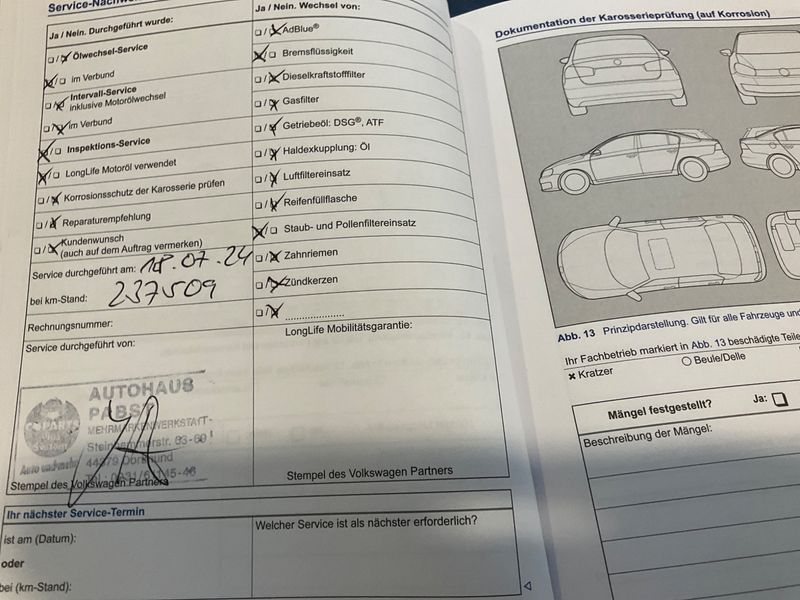 Service-Nachw
Ja / Nein. Durchgeführt wurde:
Ölwechsel-Service
im Verbund
Intervall-Service
inklusive Motorölwechsel
im Verbund
Inspektions-Service
LongLife Motoröl verwendet
Korrosionsschutz der Karosserie prüfen
Reparaturempfehlung
Kundenwunsch
(auch auf dem Auftrag vermerken)
Service durchgeführt am: 18.07.24
bei km-Stand: 237509
Rechnungsnummer:
Service durchgeführt von:
AUTOHAUS
PABST
MEHRMARKENWERKSTATT
Auto und mehr
Stempel des Volkswagen Partners
Ja / Nein. Wechsel von:
AdBlue®
Bremsflüssigkeit
Dieselkraftstofffilter
Gasfilter
Getriebeöl: DSG®, ATF
Haldexkupplung: Öl
Luftfiltereinsatz
Reifenfüllflasche
Staub- und Pollenfiltereinsatz
Zahnriemen
Zündkerzen
.....................
LongLife Mobilitätsgarantie:
Stempel des Volkswagen Partners
Ihr nächster Service-Termin
ist am (Datum):
oder
bei (km-Stand):
Welcher Service ist als nächster erforderlich?
Dokumentation der Karosserieprüfung (auf Korrosion)
Abb. 13 Prinzipdarstellung. Gilt für alle Fahrzeuge
Ihr Fachbetrieb markiert in Abb. 13 beschädigte Teile
Kratzer
Beule/Delle
Mängel festgestellt?
Ja:
Beschreibung der Mängel: